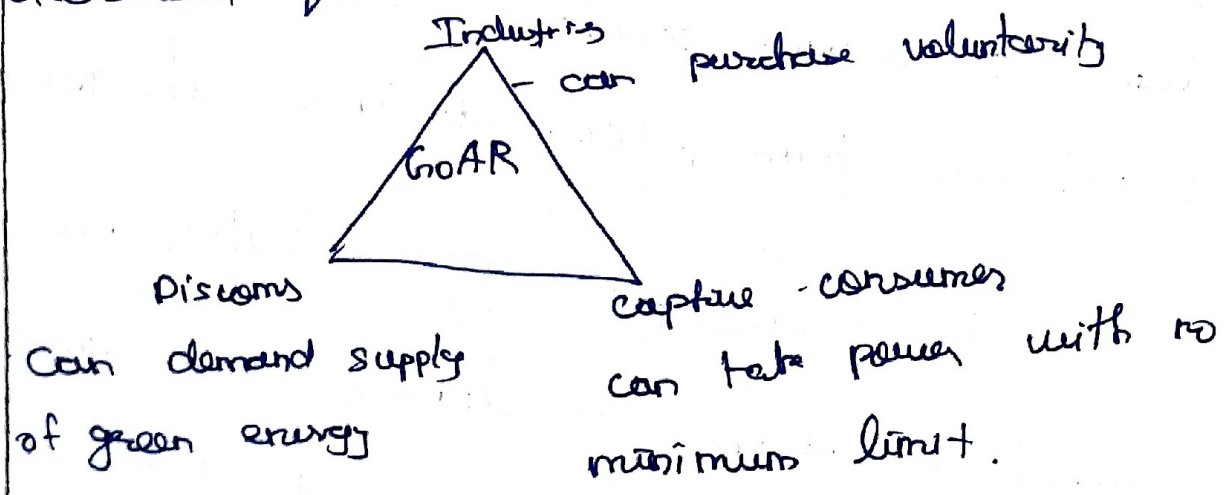 Industries
- can purchase voluntarily
GOAR
Discoms
Can demand supply
of green energy
captive consumer
can take power with no
minimum limit.